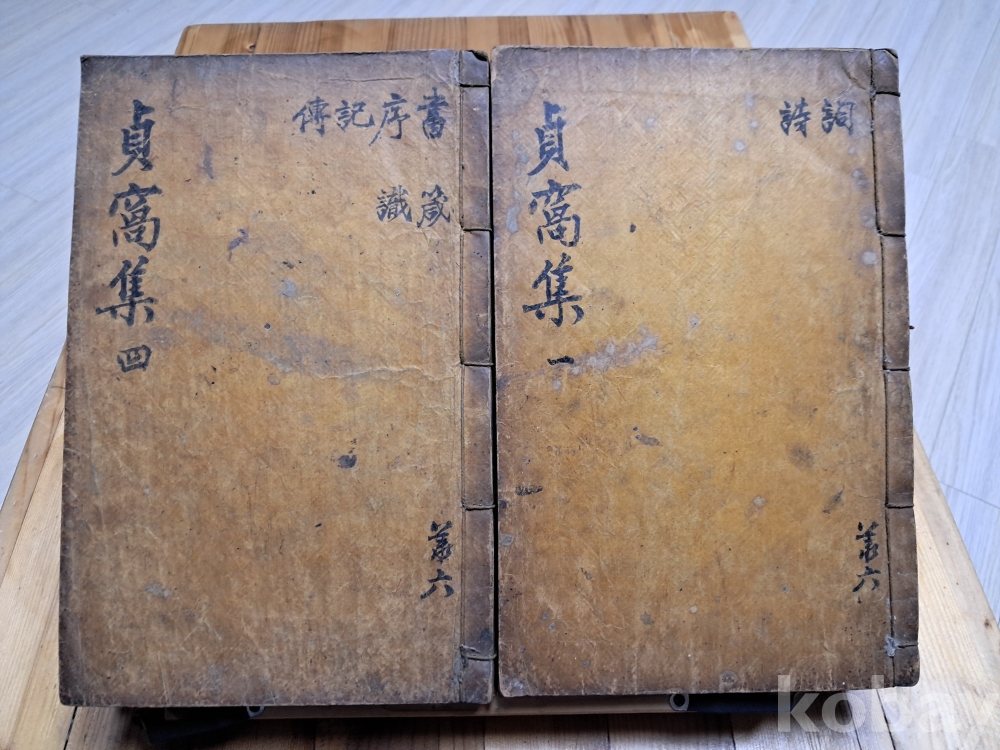 詞詩
貞窩集 一
共六
書序記傳
箴識
貞窩集 四
共六
kobay